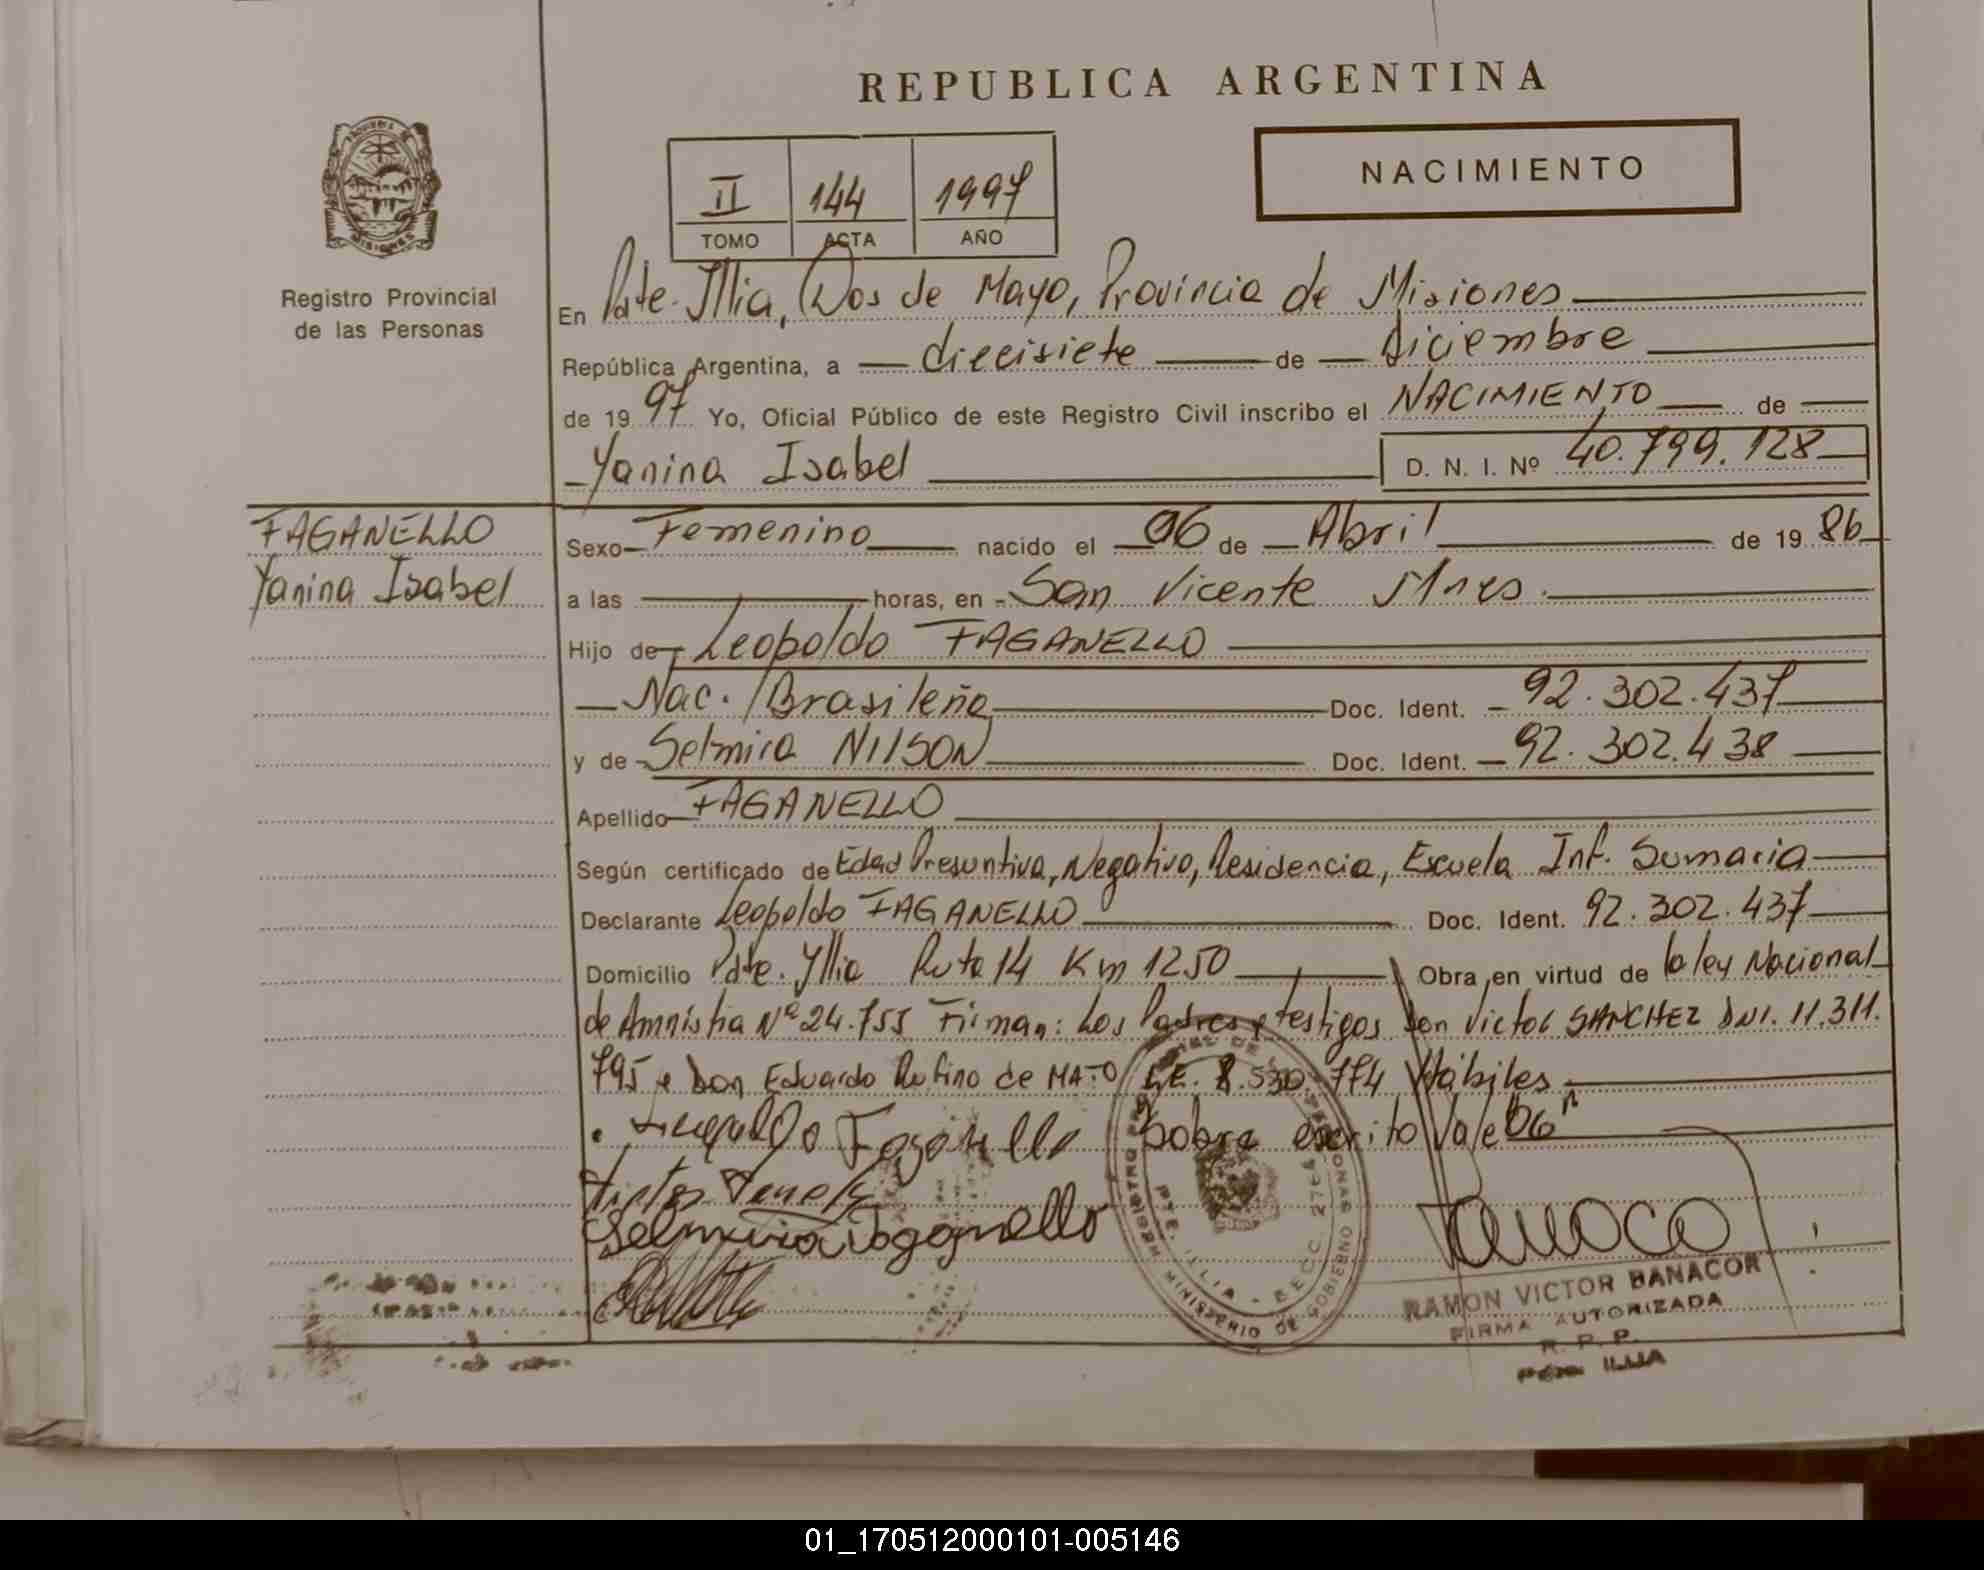 REPUBLICA ARGENTINA
NACIMIENTO
II 144 1997
TOMO ACTA AÑO
PROVINCIA DE
MISIONES
Registro Provincial
de las Personas
En Pdte. Illia, Dos de Mayo, Provincia de Misiones
República Argentina, a diecisiete de diciembre
de 19 97 Yo, Oficial Público de este Registro Civil inscribo el NACIMIENTO de
Yanina Isabel D. N. I. Nº 40.799.128
FAGANELLO
Yanina Isabel
Sexo Femenino nacido el 06 de Abril de 19 86
a las horas, en San Vicente Mnes.
Hijo de Leopoldo FAGANELLO
Nac. Brasileña Doc. Ident. 92.302.437
y de Selmira NILSON Doc. Ident. 92.302.438
Apellido FAGANELLO
Según certificado de Edad Presuntiva, Negativo, Residencia, Escuela Inf. Sumaria
Declarante Leopoldo FAGANELLO Doc. Ident. 92.302.437
Domicilio Pdte. Yllia Ruta 14 Km 1250 Obra en virtud de la ley Nacional
de Amnistia Nº 24.755 Firman: Los Padres y testigos Don Victor SANCHEZ DNI. 11.311.
795 y Don Eduardo Rufino de MATO LE. 8.530.774 Hábiles
Sobre escrito Vale "06"
Leopoldo Faganello
Selmira Faganello
REGISTRO PROVINCIAL DE LAS PERSONAS
MINISTERIO DE GOBIERNO
PTE. ILLIA - SECC. 2764
RAMON VICTOR BANACOR
FIRMA AUTORIZADA
R. P. P.
Pdte ILLIA
01_170512000101-005146